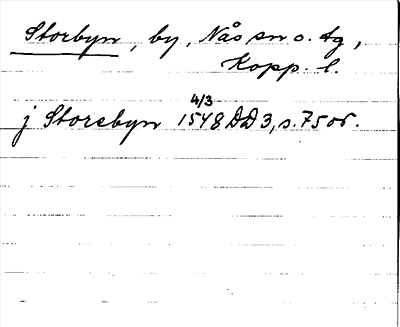 Storbyn, by, Nås sn o. tg,
Kopp. l.
4/3
j Storebyn 1548 DD 3, s. 75 or.